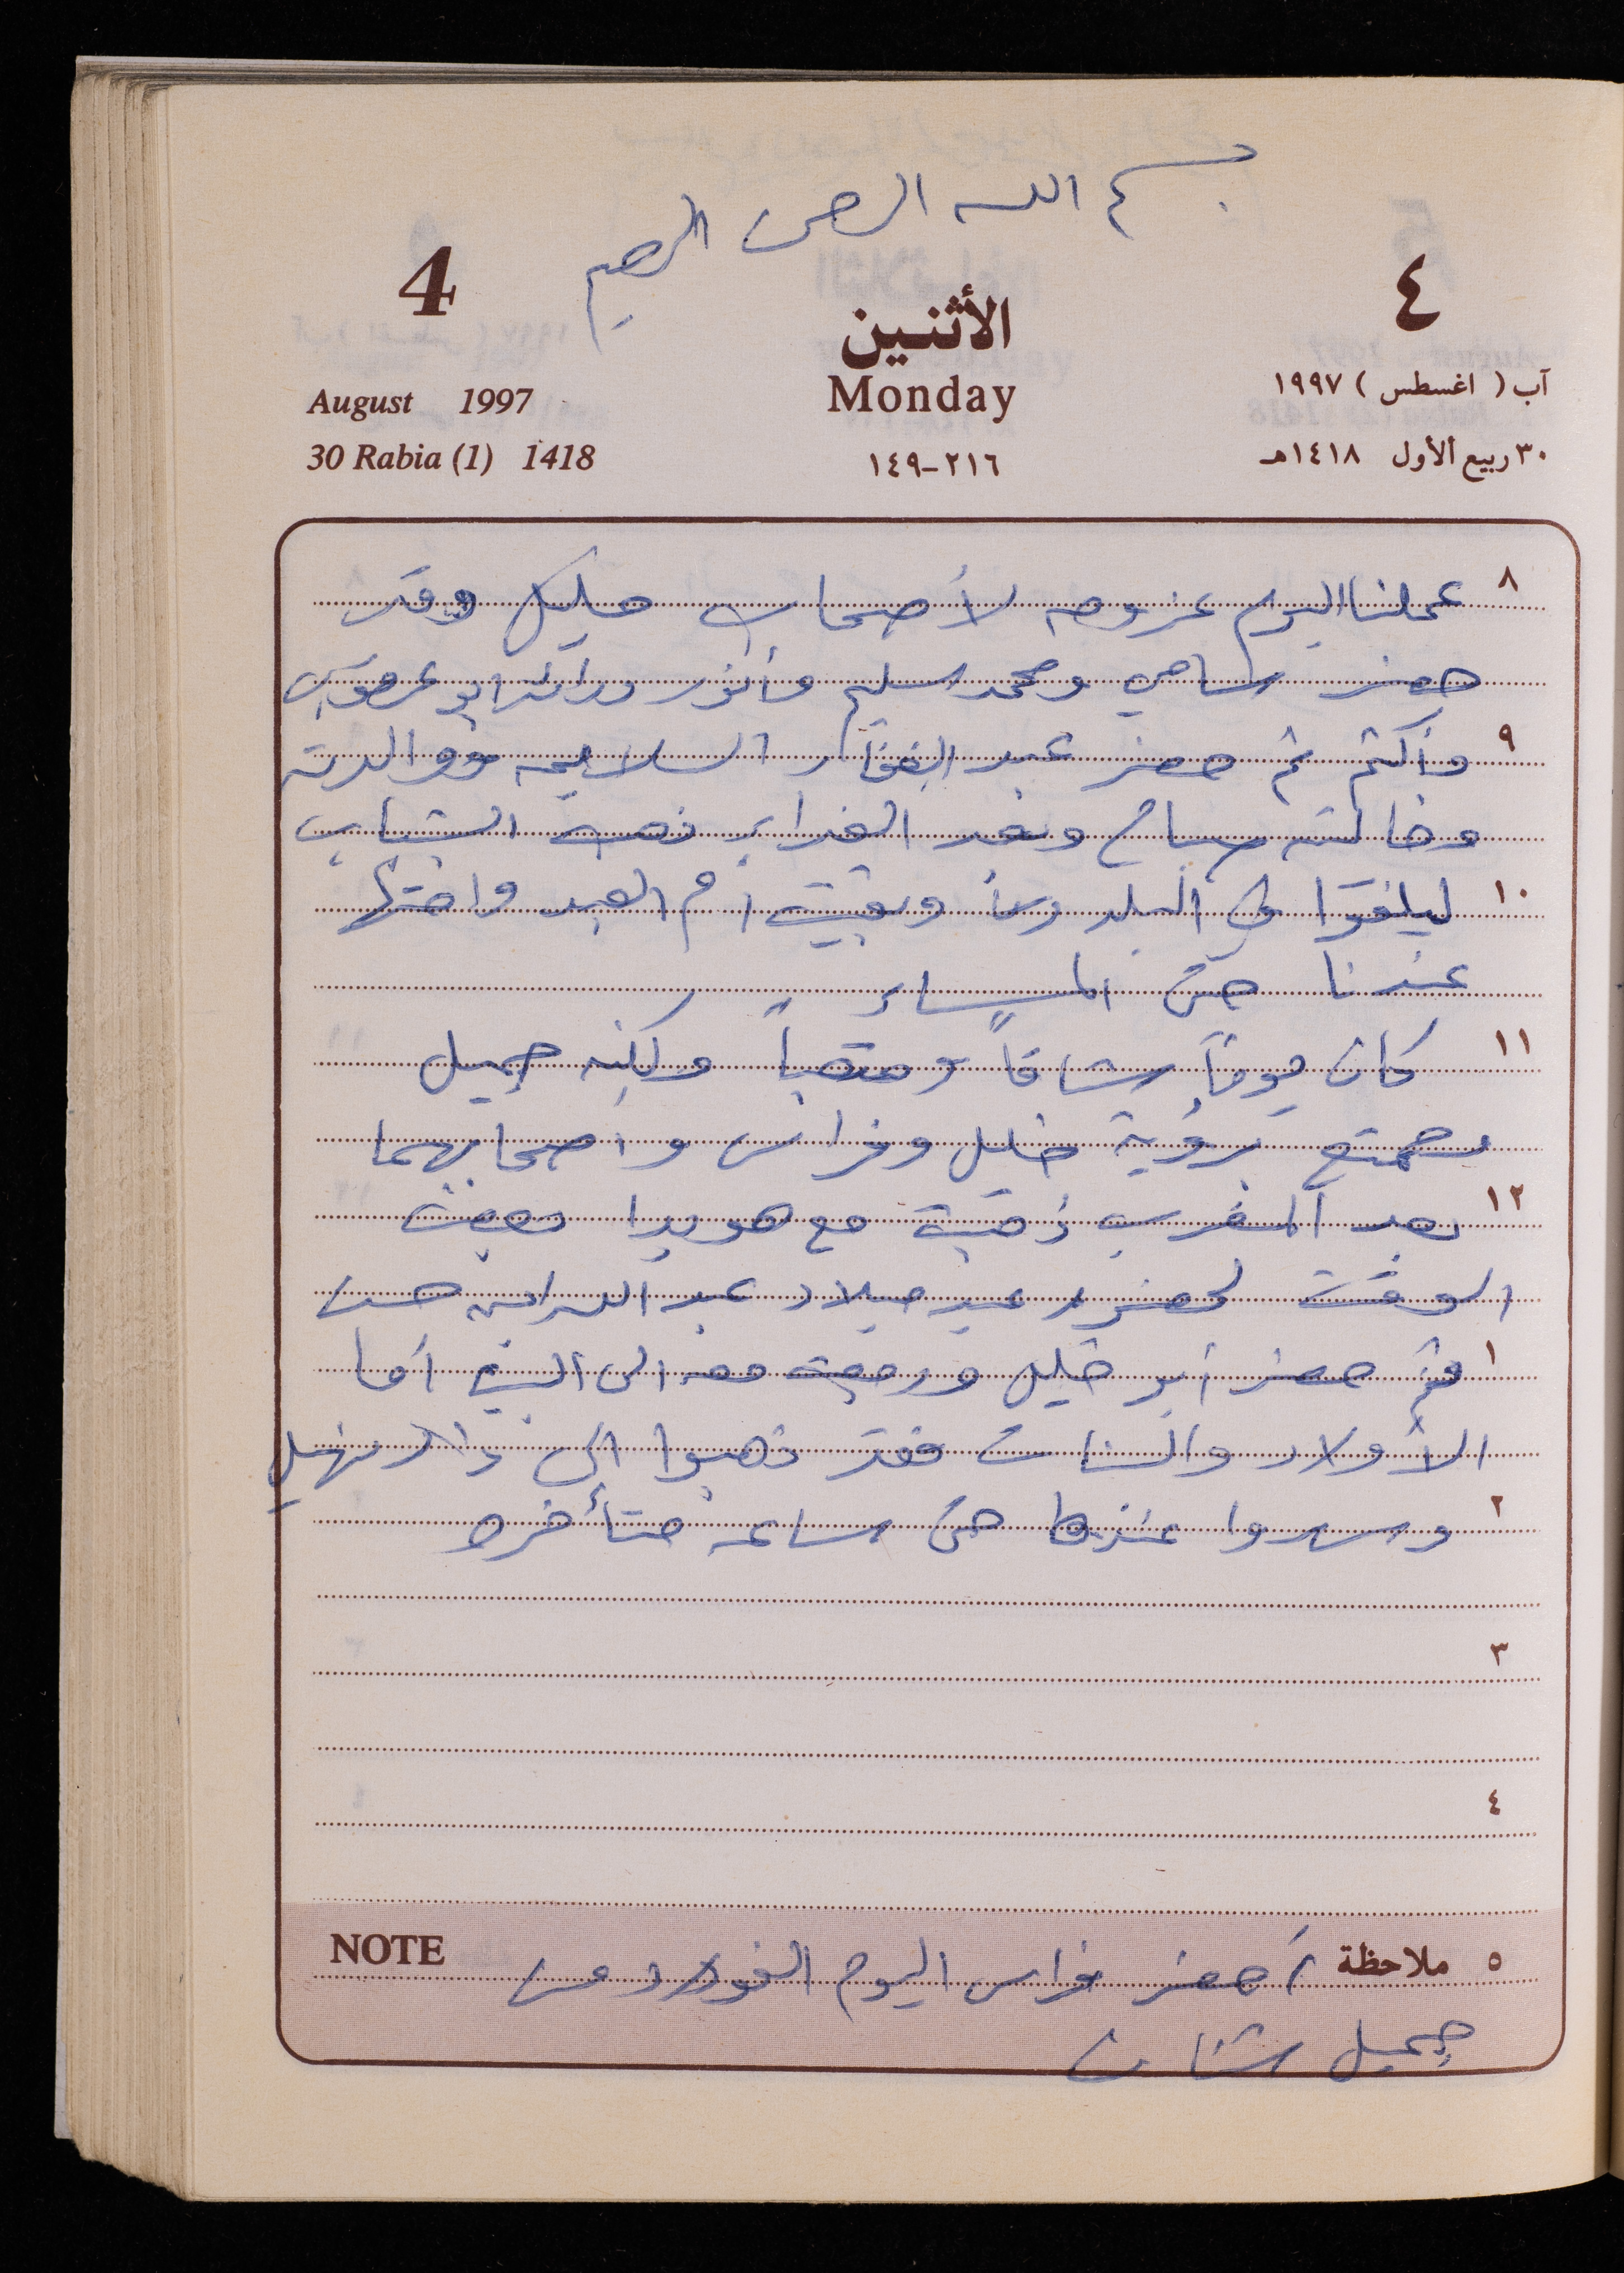 بسم الله الرحمن الرحيم
4
٤
الأثنين
August 1997
Monday
آب ( اغسطس ) ١٩٩٧
30 Rabia (1) 1418
٢١٦-١٤٩
٣٠ ربيع الأول ١٤١٨هـ
٨ عملنا اليوم عزومه لأصحاب خليل وقد
حضر سامي ومحمد سليم وأنور ورائد ابو عرقوب
٩ وأكثم ثم حضر عبد الغفار السلايمه ووالدته
وخالته سماح وبعد الغداء ذهب الشباب
١٠ ليلفوا في البلد وبقيت أم العبد واختها
عندنا حتى المساء
١١ كان يوماً شاقاً ومتعباً ولكنه جميل
وممتع برؤية خليل وفراس واصحابهما
١٢ بعد المغرب ذهبت مع هويدا بعض
الوقت لحضور عيد ميلاد عبد الله ابن حسن
١ ثم حضر أبو خليل ورجعت معه الى البيت أما
الأولاد والبنات فقد ذهبوا الى دار سهيل
٢ وسهروا عندها حتى ساعه متأخره
٣
٤
٥ ملاحظة أحضر فراس اليوم الفورد من
NOTE
جميل شتات